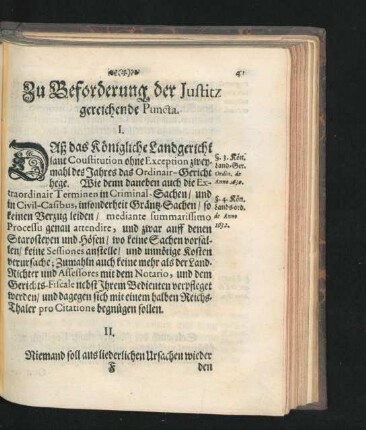 41
Zu Beforderung der Justitz
gereichende Puncta.
I.
Daß das Königliche Landgericht
laut Constitution ohne Exception zwey-
mahl des Jahres das Ordinair-Gericht
hege. Wie denn daneben auch die Ex-
traordinair Terminen in Criminal-Sachen/ und
in Civil-Casibus, insonderheit Gräntz-Sachen/ so
keinen Verzug leiden/ mediante summarissimo
Processu genau attendite, und zwar auff denen
Starosteyen und Höfen/ wo keine Sachen vorfal-
len/ keine Sessiones anstelle/ und unnötige Kosten
verursache; Zumahln auch keine mehr als der Land-
Richter und Assessores mit dem Notario, und dem
Gerichts-Fiscale nebst Ihrem Bedienten verpfleget
werden/ und dagegen sich mit einem halben Reichs-
Thaler pro Citatione begnügen sollen.
§. 3. Kön.
Land-Ger.
Ordin. de
Anno 1630.
§. 4. Kön.
Land-Ord.
de Anno
1632.
II.
Niemand soll aus liederlichen Ursachen wieder
F
den